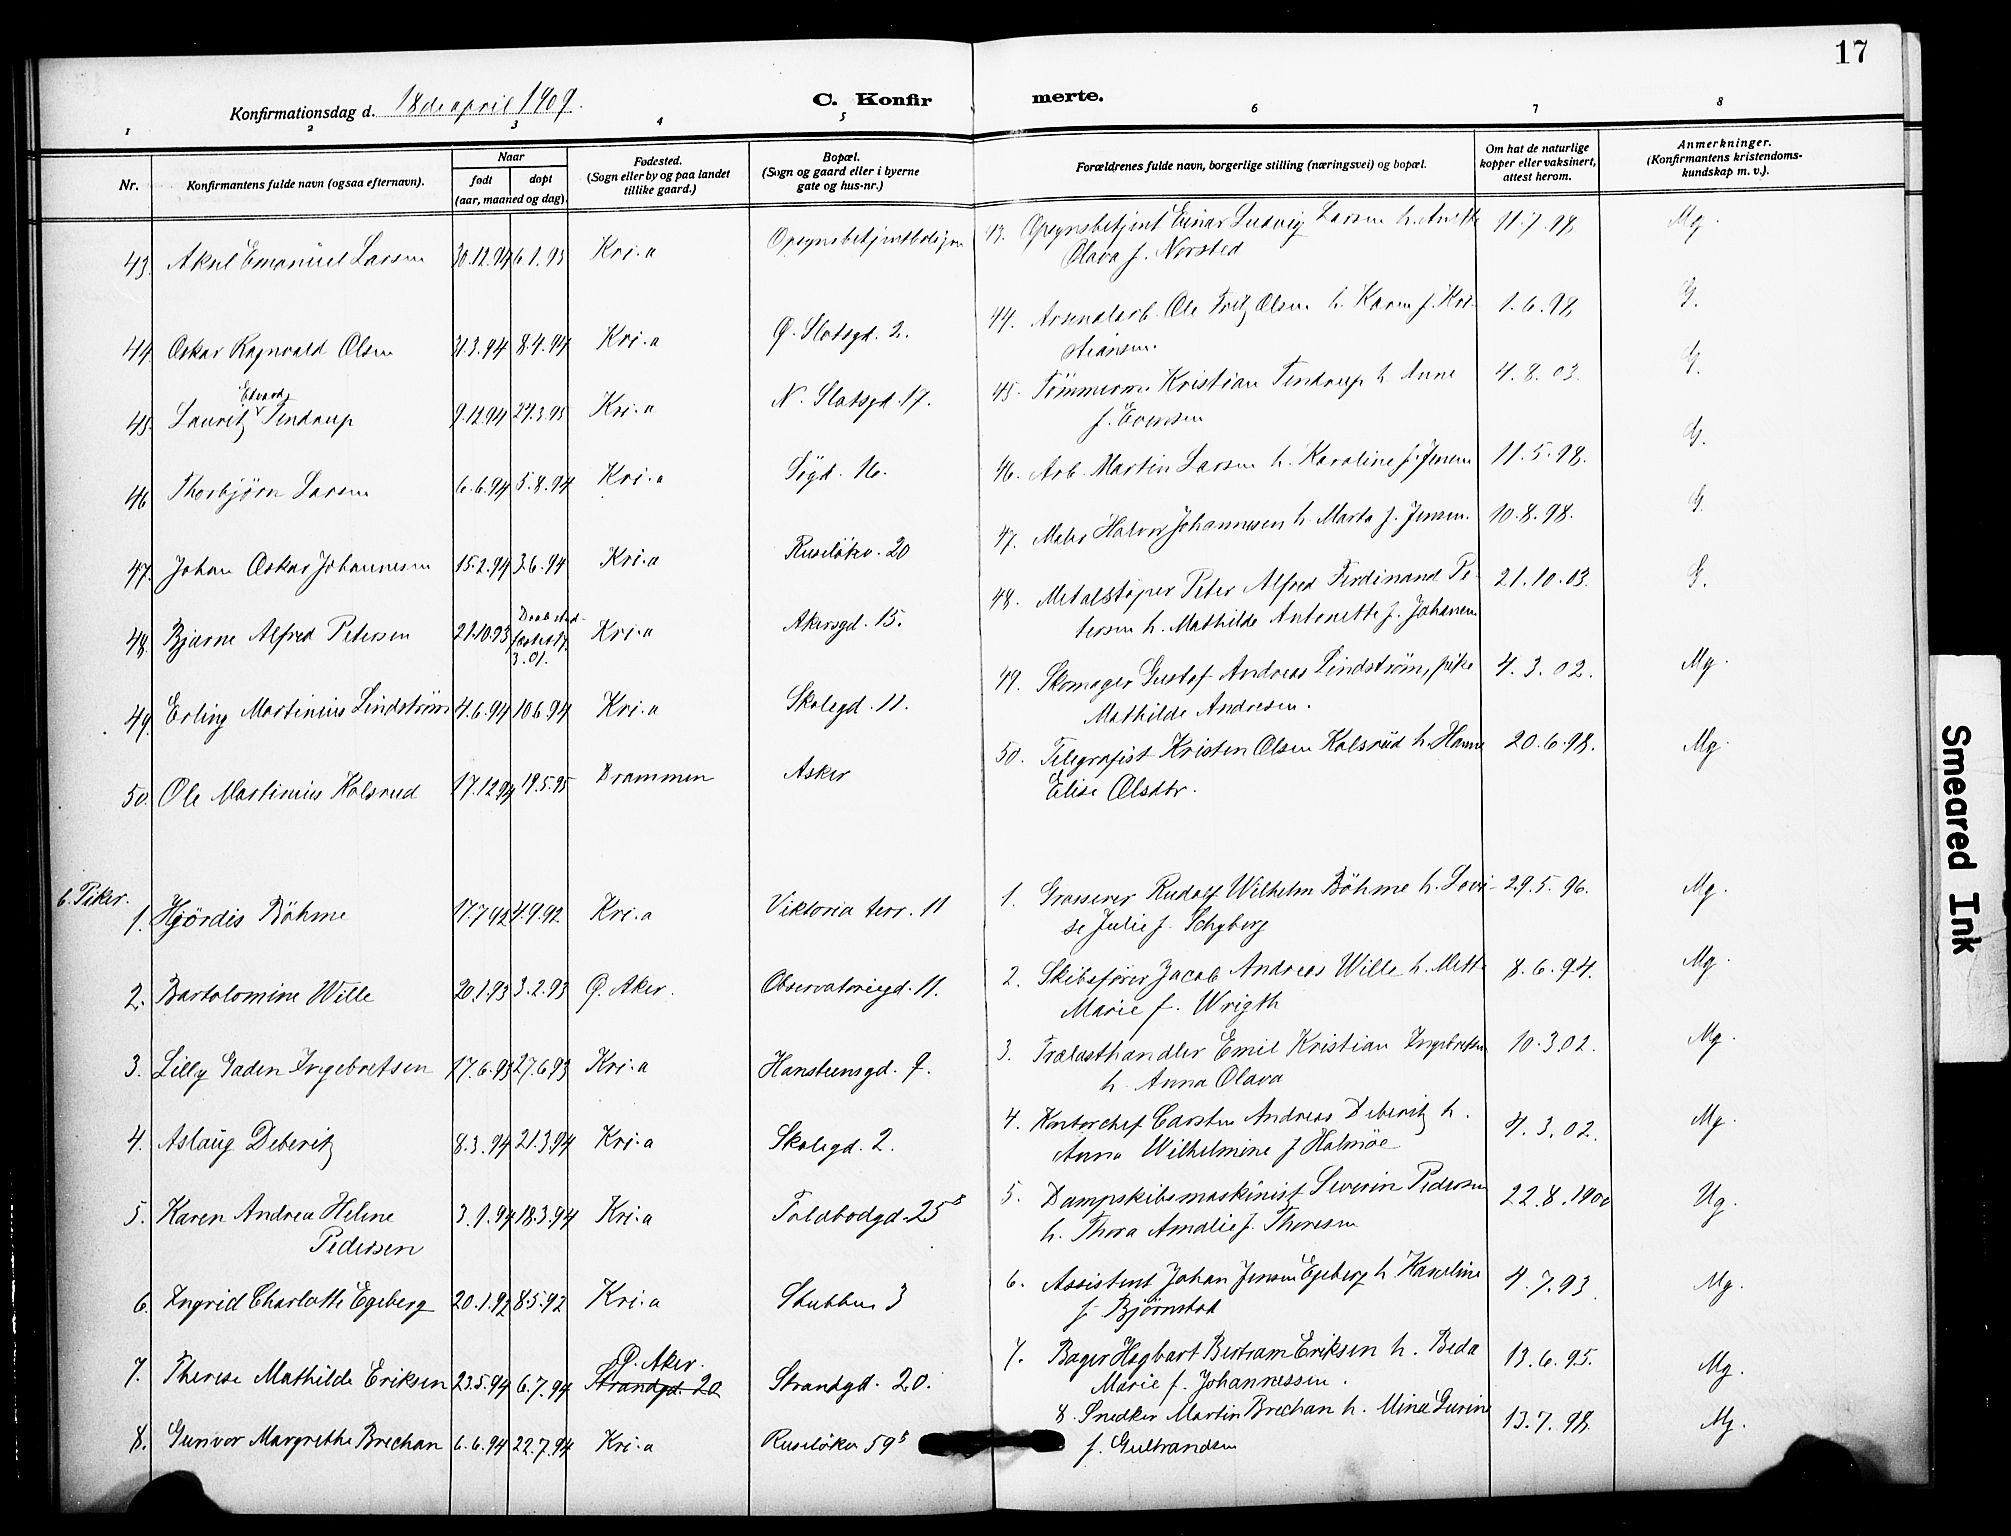 17
Konfirmationsdag d. 18de april 1909.
C. Konfir
merte.
1 2 3 4 5 6 7 8
Nr.
Konfirmantens fulde navn (ogsaa efternavn).
Naar
født døpt
(aar, maaned og dag).
Fødested.
(Sogn eller by og paa landet
tillike gaard.)
Bopæl.
(Sogn og gaard eller i byerne
gate og hus-nr.)
Forældrenes fulde navn, borgerlige stilling (næringsvei) og bopæl.
Om hat de naturlige
kopper eller vaksinert,
attest herom.
Anmerkninger.
(Konfirmantens kristendoms-
kundskap m. v.).
43. Aksel Emanuel Larsen 30.12.94 6.1.95 Kri.a Opsynsbetjentboligen 43. Opsynsbetjent Einar Ludvig Larsen h. Anette 11.7.98 Mg.
Olava f. Norsted
44. Oskar Ragnvald Olsen 31.3.94 8.4.94 Kri.a Ø. Slotsgd. 2. 44. Arsenalarb. Ole Fritz Olsen h. Karen f. Kri- 1.6.98 G.
stiansen.
Edvard
45. Lauritz Tendrup 9.12.94 27.3.95 Kri.a N. Slotsgd. 17. 45. Tømmerm. Kristian Tendrup h. Anne 4.8.03. G.
f. Evensen
46. Thorbjørn Larsen 6.6.94 5.8.94 Kri.a Søgd. 16. 46. Arb. Martin Larsen h. Karoline f. Jensen 11.5.98. G.
47. Johan Oskar Johannesen 15.2.94 3.6.94 Kri.a Ruseløkv. 20 47. Maler Halvor Johannesen h. Marta f. Jensen. 10.8.98. G.
48. Bjarne Alfred Petersen 21.10.93 Kri.a Akersgd. 15. 48. Metalstøper Peter Alfred Ferdinand Pe- 21.10.03. G.
3.01.
tersen h. Mathilde Antonette f. Johansen
49. Erling Martinius Lindstrøm 4.6.94 10.6.94 Kri.a Skolegd. 11. 49. Skomager Gustaf Andreas Lindstrøm, pike 4.3.02. Mg.
Mathilde Andresen.
50. Ole Martinius Kolsrud 17.12.94 19.5.95 Drammen Asker 50. Telegrafist Kristen Olsen Kolsrud h. Hanne 20.6.98. Mg.
Elise Olsdtr.
b. Piker.
1. Hjørdis Böhme 17.7.92 4.9.92 Kri.a Viktoria terr. 11 1. Grosserer Rudolf Wilhelm Böhme h. Lovi- 29.5.96. Mg.
se Julie f. Schyberg
2. Bartolomine Wille 20.1.93 3.2.93 Ø. Aker. Observatoriegd. 11. 2. Skibsfører Jacob Andreas Wille h. Mette 8.6.94. Mg.
Marie f. Wrigth
3. Lilly Gaden Ingebretsen 17.6.93 27.6.93 Kri.a Hansteensgd. 9. 3. Trælasthandler Emil Kristian Ingebretsen 10.3.02. Mg.
h. Anna Olava
4. Aslaug Deberitz 8.3.94 21.3.94 Kri.a Skolegd. 2. 4. Kontorchef Carsten Andreas Deberitz h. 4.3.02. Mg.
Anna Wilhelmine f Holmøe
5. Karen Andrea Helene 3.1.94 18.3.94 Kri.a Toldbodgd. 25 5. Dampskibsmaskinist Severin Pedersen 22.8.1900 Ug.
Pedersen h. Thora Amalie f. Thoresen
6. Ingrid Charlotte Egeberg 20.1.92 8.5.92 Kri.a Stubben 3 6. Assistent Johan Jensen Egeberg h Karoline 4.7.93. Mg.
f. Bjørnstad
Ø. Aker.
7. Therese Mathilde Eriksen 23.5.94 6.7.94 Strandgd. 20 Strandgd. 20. 7. Bager Hagbart Bertram Eriksen h. Beda 13.6.95. Mg.
Marie f. Johannessen.
8. Gunvor Margrethe Brechan 6.6.94 22.7.94 Kri.a Ruseløkv 59 8. Snedker Martin Brechan h. Mina Gurine 13.7.98. Mg.
f. Gulbrandsen
Smeared Ink